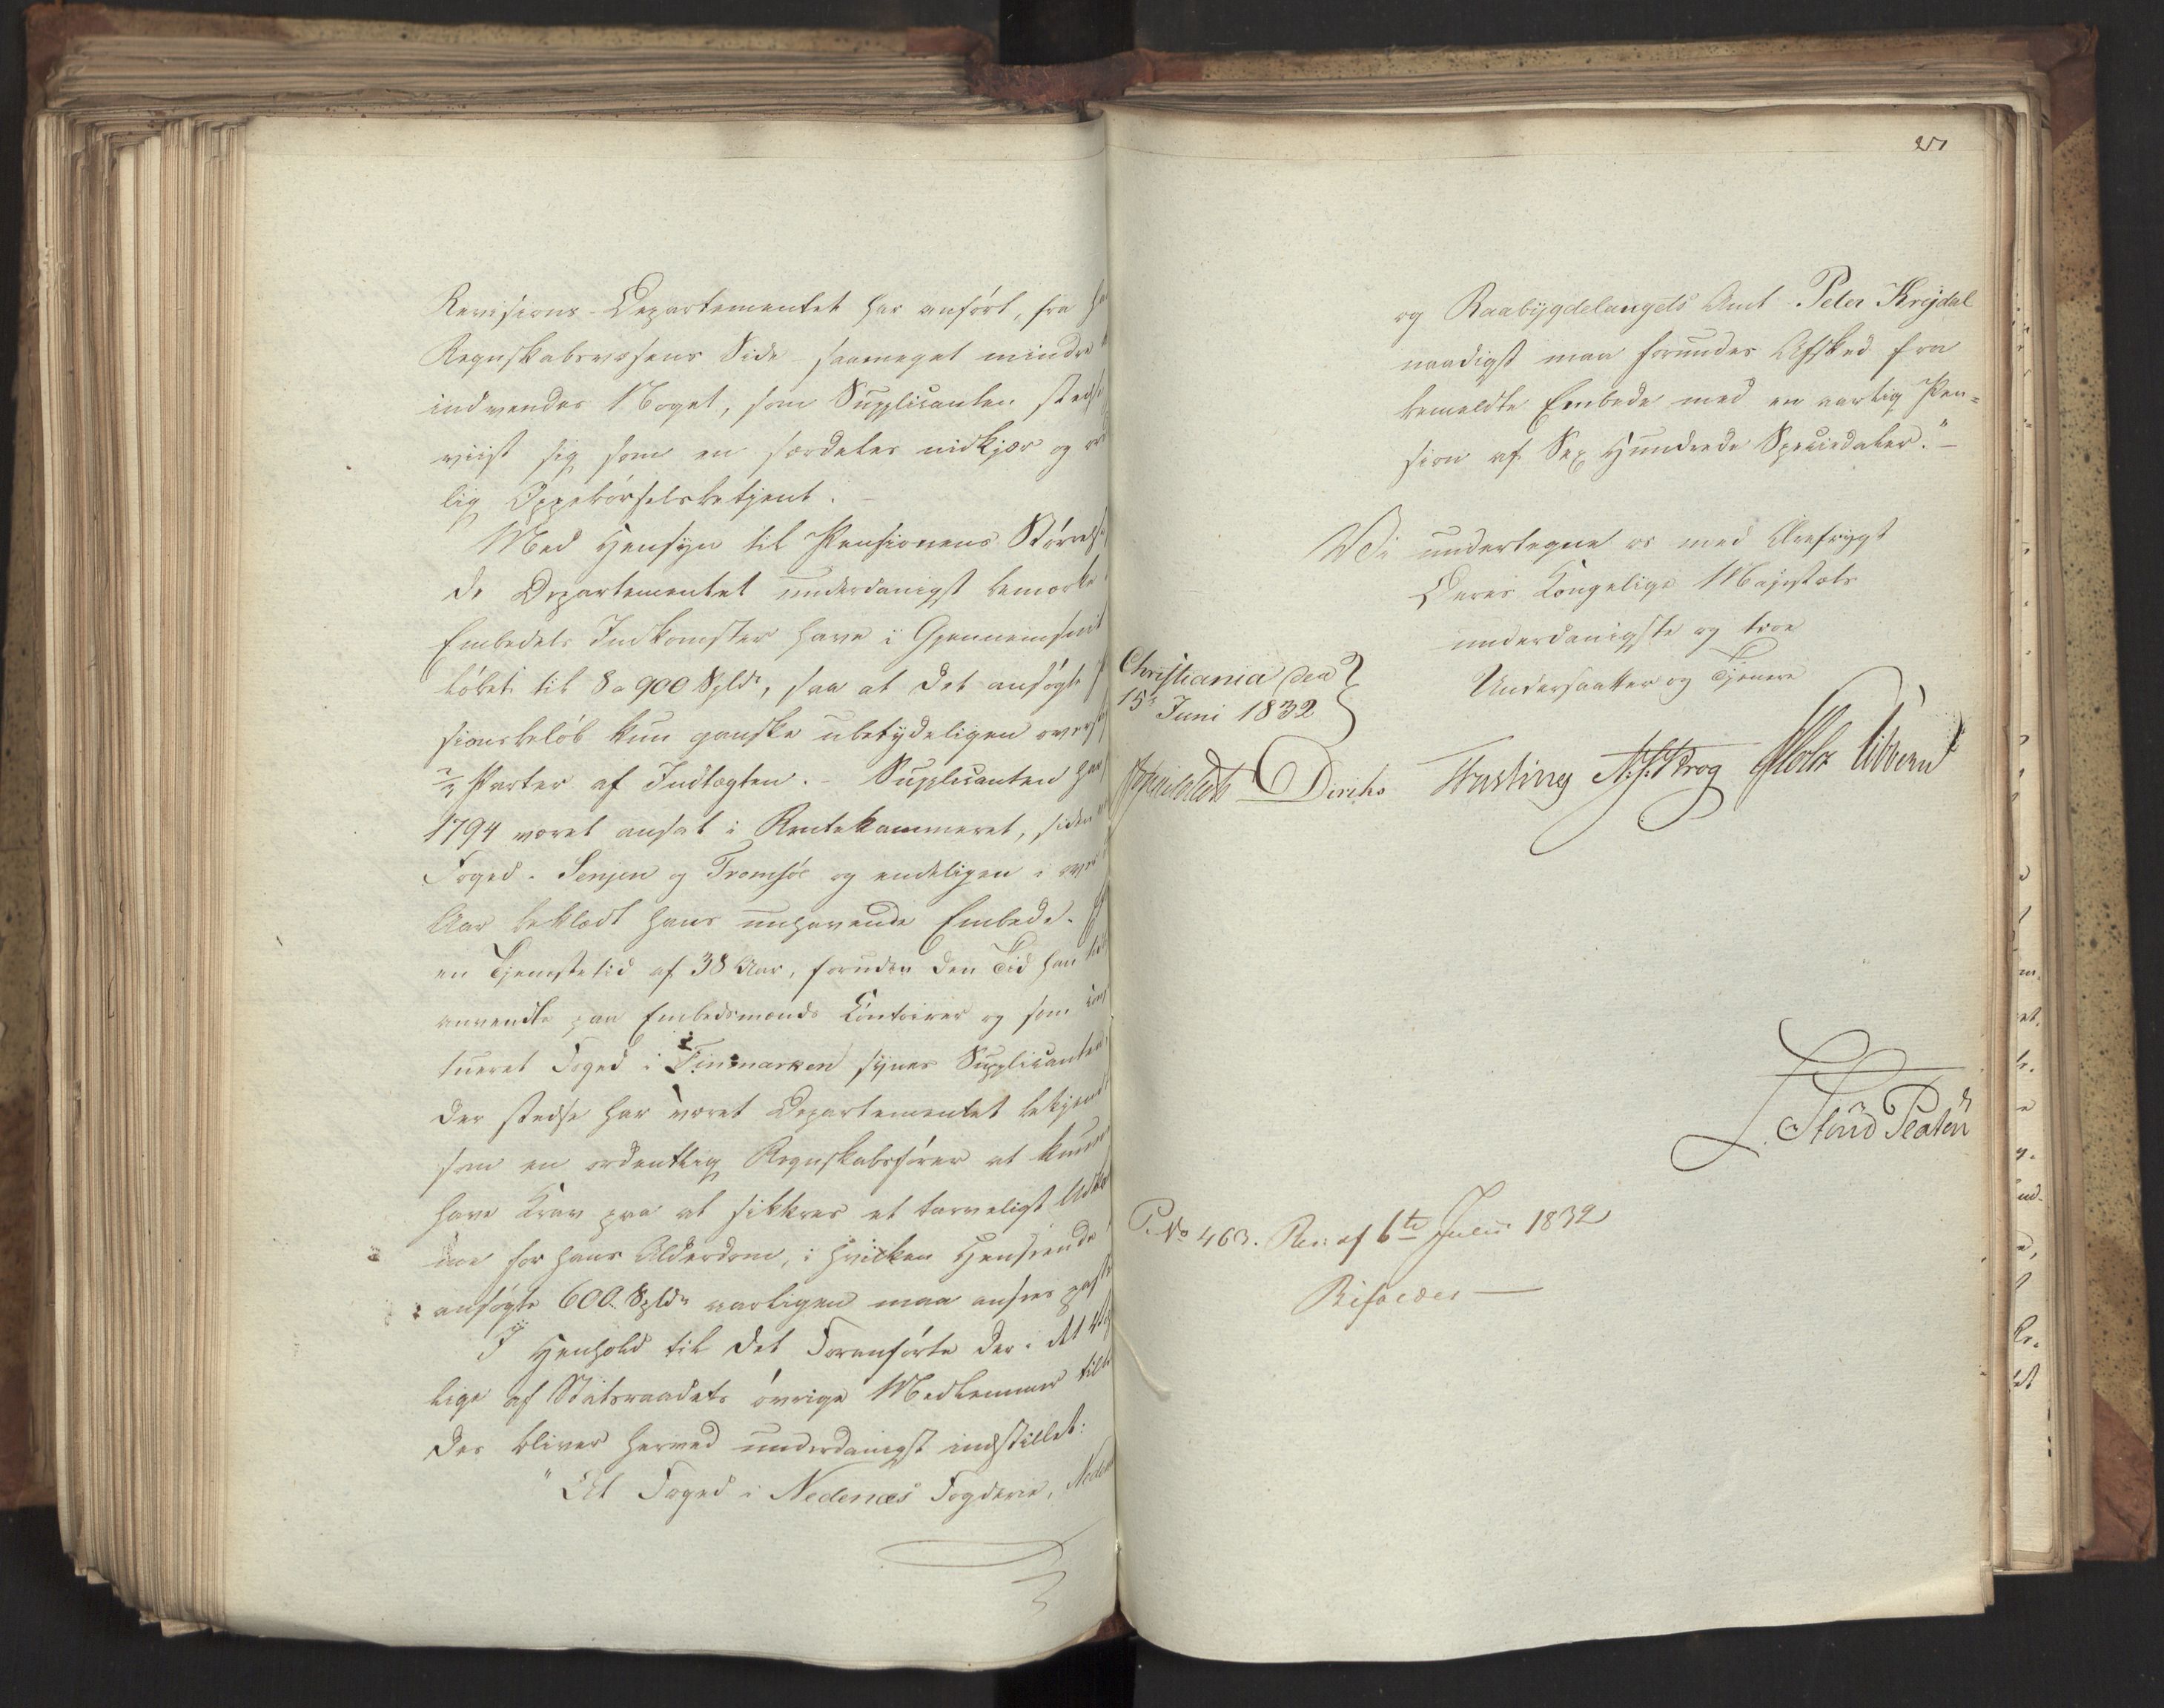 Revisions-Departementet har anført, fra
Regnskabsvæsens Side saameget mindre
indvendes Noget, som Supplicanten stedse
viist sig som en særdeles nidkjær og
lig Oppebørselsbetjent.
Med Hensyn til Pensionens Størrelse
de Departementet underdanigst bemærke
Embedets Indkomster have i Gjennemsnit
løbet til 8 a 900 Spldr, saa at det ansøgte
sionsbeløb kun ganske ubetydeligen
2/3 Parter af Indtægten. - Suplicanten har
1794 været ansat i Rentekammeret, siden
Foged i Senjen og Tromsøe og endeligen i
Aar beklædt hans nuhavende Embede.
en Tjenestetid af 38 Aar, foruden den Tid han
anvendte paa Embedsmænds Contoirer og som
tueret Foged i Finmarken synes Supplicanten,
der stedse har været Departementet bekjendt
som en ordentlig Regnskabsfører at kunne
have Krav paa at sikkres et tarveligt
me for hans Alderdom, i hvilken Henseende
ansøgte 600 Spldr aarligen maa ansees
I Henhold til det Foranførte der i Et og
lige af Statsraadets øvrige Medlemmer
des bliver herved underdanigst indstillet:
"At Foged i Nedenæs Fogderie,
251
og Raabygdelaugets Amt Peter Krejdal
naadigst maa forundes Afsked fra
bemeldte Embede med en aarlig Pen=
sion af Sex Hundrede Speciedaler."-
Vi undertegne os med Ærefrygt
Deres Kongelige Majestæts
underdanigste og troe
Undersaatter og Tjenere
Christiania den
15de Juni 1832
Diriks Fasting Krog Holst Vibbern
L. Störud Platen
P. No 463. Res: af 6te Julii 1832
Bifaldes